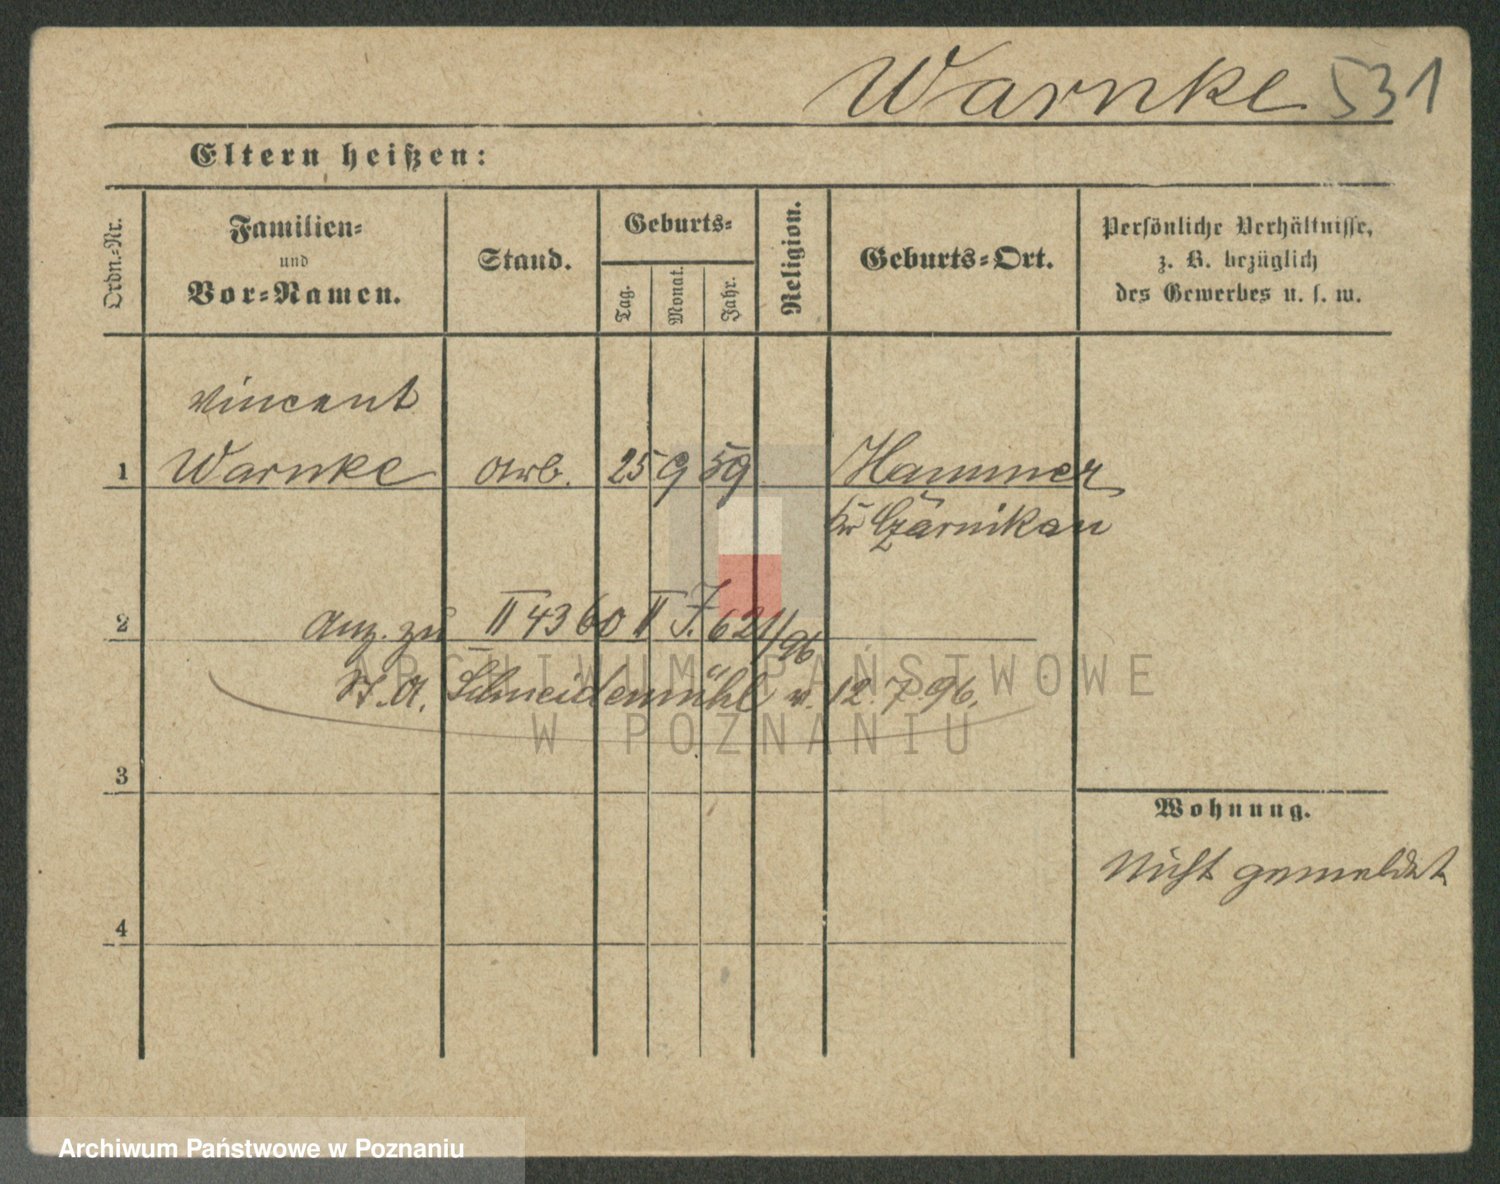 Warnke 531
Eltern heißen:
Ordn.-Nr.
Familien-
und
Vor-Namen.
Stand.
Geburts-
Tag.
Monat.
Jahr.
Religion.
Geburts-Ort.
Persönliche Verhältnisse,
z. B. bezüglich
des Gewerbes u. s. w.
Vincent
1 Warnke Arb. 25 9 59 Hammer
Kr Czarnikau
2 Anz. zu II 4360 II J. 621/96
St. A. Schneidemühl v. 12.7.96.
ARCHIWUM PAŃSTWOWE
W POZNANIU
3
Wohnung.
Nicht gemeldet
4
Archiwum Państwowe w Poznaniu